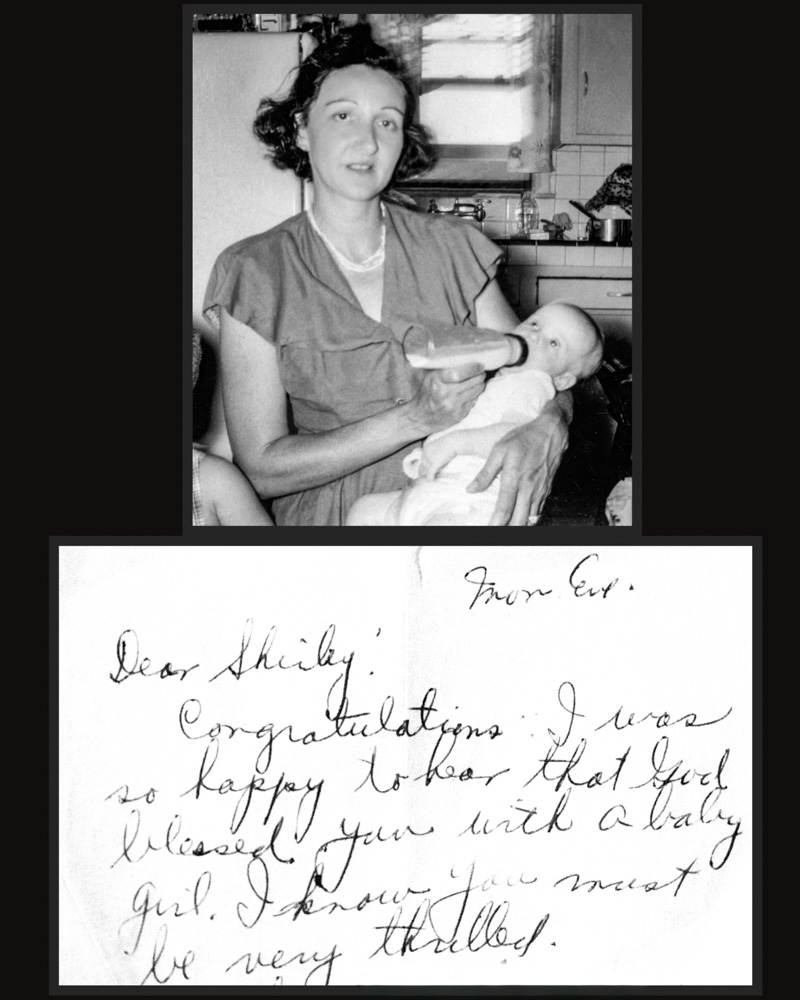 Mon Eve.
Dear Shirley!
Congratulations I was
so happy to hear that God
blessed you with a baby
girl. I know you must
be very thrilled.